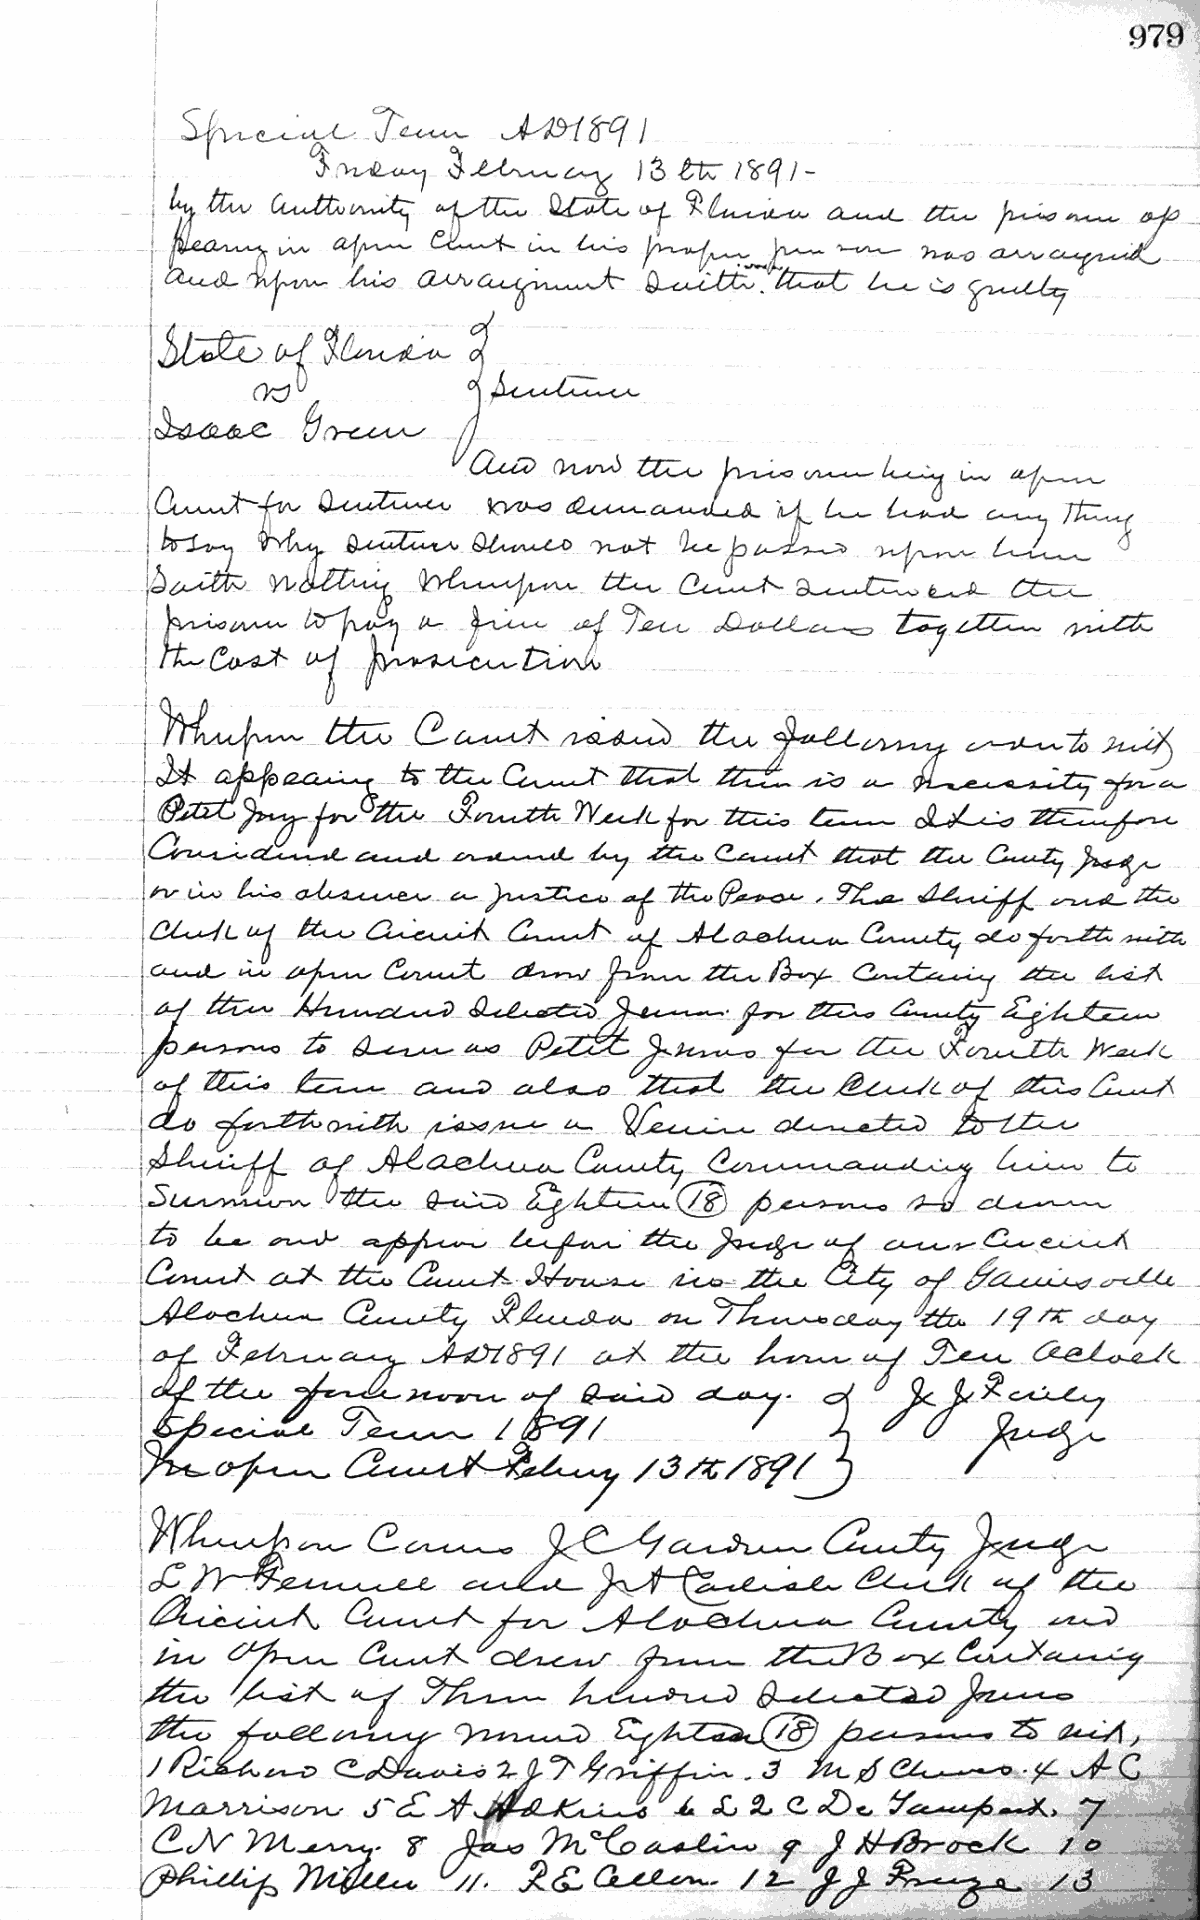 979
Special Term AD 1891
Friday February 13th 1891-
by the authority of the State of Florida and the prisoner ap
pearing in open Court in his proper person was arraigned
and upon his arraignment Saith that he is guilty
State of Florida
vs
Sentence
Isaac Green
And now the prisoner being in open
Court for Sentence was demanded if he had any thing
to say Why Sentence Should not be passed upon him
Saith nothing Whereupon the Court Sentenced the
prisoner to pay a fine of Ten Dollars together with
the Cost of prosecution
Whereupon the Court issued the following order to wit
It appearing to the Court that there is a necessity for a
Petit Jury for the Fourth Week for this term It is therefore
Considered and ordered by the Court that the County Judge
or in his absence a Justice of the Peace. The Sheriff and the
Clerk of the Circuit Court of Alachua County do forthwith
and in open Court draw from the Box Containing the list
of three Hundred Selected Jurors for this County Eighteen
persons to serve as Petit Jurors for the Fourth Week
of this term and also that the Clerk of this Court
do forthwith issue a Venire directed to the
Sheriff of Alachua County Commanding him to
Summon the said Eighteen (18) persons so drawn
to be and appear before the Judge of our Circuit
Court at the Court House in the City of Gainesville
Alachua County Florida on Thursday the 19th day
of February AD 1891 at the hour of Ten Oclock
of the forenoon of said day. J J Finley
Special Term 1891 Judge
In open Court Febury 13th 1891
Whereupon Comes J C Gardner County Judge
L W Fennell and J A Carlisle Clerk of the
Circuit Court for Alachua County and
in Open Court drew from the Box Containing
the list of Three hundred Selected Jurors
the following named Eighteen (18) persons to wit,
1 Richard C Davis 2 J T Griffin. 3 M S Cheves. 4 A C
Morrison 5 E A Adkins 6 C De 7
C N Merry. 8 Jas McCaslin 9 J H Brock 10
Phillip Miller 11. R E Cellon. 12 J J 13